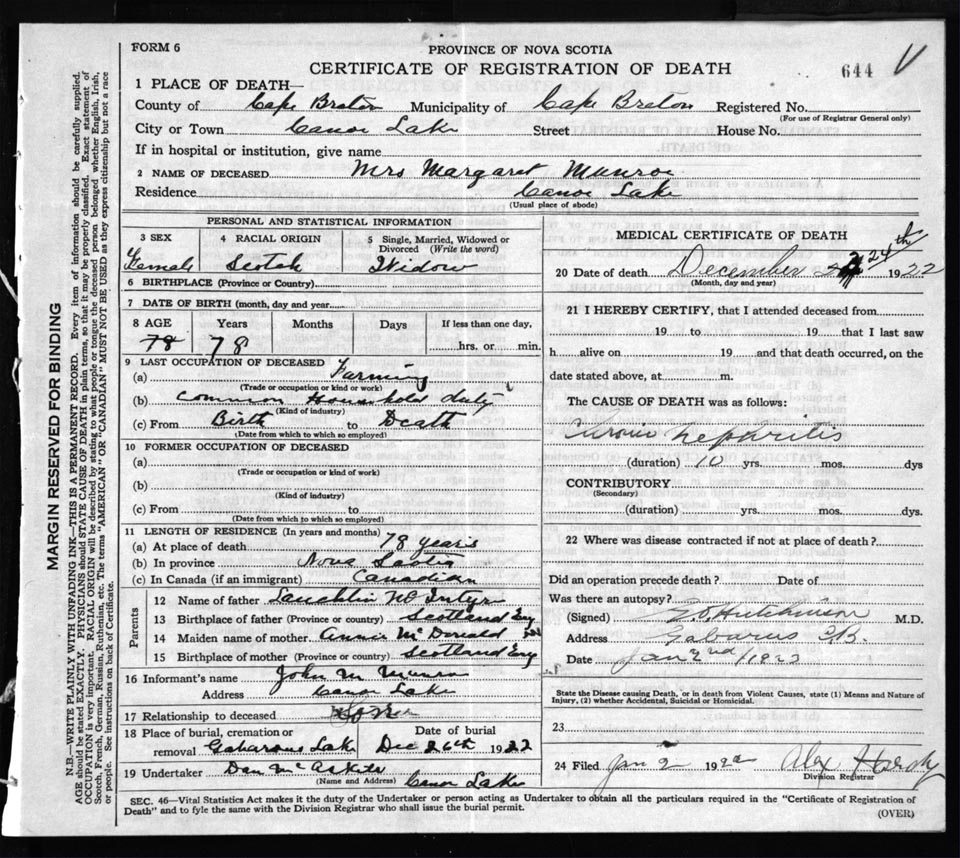 FORM 6
PROVINCE OF NOVA SCOTIA
CERTIFICATE OF REGISTRATION OF DEATH
644
1 PLACE OF DEATH—
County of Cape Breton Municipality of Cape Breton Registered No.
(For use of Registrar General only)
City or Town Canoe Lake Street House No.
If in hospital or institution, give name
2 NAME OF DECEASED Mrs Margaret Munroe
Residence Canoe Lake
(Usual place of abode)
PERSONAL AND STATISTICAL INFORMATION
3 SEX 4 RACIAL ORIGIN 5 Single, Married, Widowed or
Divorced (Write the word)
Female Scotch Widow
6 BIRTHPLACE (Province or Country)
7 DATE OF BIRTH (month, day and year
8 AGE Years Months Days If less than one day,
78 78 hrs. or min.
9 LAST OCCUPATION OF DECEASED
(a) Farming
(Trade or occupation or kind of work)
(b) Common Household duty
(Kind of industry)
(c) From Birth to Death
(Date from which to which so employed)
10 FORMER OCCUPATION OF DECEASED
(a)
(Trade or occupation or kind of work)
(b)
(Kind of industry)
(c) From to
(Date from which to which so employed)
11 LENGTH OF RESIDENCE (In years and months)
(a) At place of death 78 years
(b) In province Nova Scotia
(c) In Canada (if an immigrant) Canadian
Parents
12 Name of father Lauchlin Mc Intyre
13 Birthplace of father (Province or country) Scotland Eng
14 Maiden name of mother Annie McDonald
15 Birthplace of mother (Province or country) Scotland Eng
16 Informant's name John M Munro
Address Canoe Lake
17 Relationship to deceased
18 Place of burial, cremation or Date of burial
removal Gabarous Lake Dec 26th 1922
19 Undertaker Dan Mc
(Name and Address) Canoe Lake
MEDICAL CERTIFICATE OF DEATH
20 Date of death December 24th 1922
(Month, day and year)
21 I HEREBY CERTIFY, that I attended deceased from
19 to 19 that I last saw
h alive on 19 and that death occurred, on the
date stated above, at m.
The CAUSE OF DEATH was as follows:
Chronic Nephritis
(duration) 10 yrs. mos. dys
CONTRIBUTORY
(Secondary)
(duration) yrs. mos. dys.
22 Where was disease contracted if not at place of death?
Did an operation precede death? Date of
Was there an autopsy?
(Signed) Hutchinson M.D.
Address Gabarus C.B.
Date Jan 2nd/1923
State the Disease causing Death, or in death from Violent Causes, state (1) Means and Nature of
Injury, (2) whether Accidental, Suicidal or Homicidal.
23
24 Filed Jan 2 192 Alex Hardy
Division Registrar
SEC. 46—Vital Statistics Act makes it the duty of the Undertaker or person acting as Undertaker to obtain all the particulars required in the "Certificate of Registration of
Death" and to fyle the same with the Division Registrar who shall issue the burial permit.
(OVER)
MARGIN RESERVED FOR BINDING
N.B.—WRITE PLAINLY WITH UNFADING INK—THIS IS A PERMANENT RECORD. Every item of information should be carefully supplied.
AGE should be stated EXACTLY. PHYSICIANS should STATE CAUSE OF DEATH in plain terms, so that it may be properly classified. Exact statement of
OCCUPATION is very important. RACIAL ORIGIN will be described by stating to what people or tongue the deceased person belonged whether English, Irish,
Scotch, French, German, Russian, Ruthenian, etc. The terms "AMERICAN" OR "CANADIAN" MUST NOT BE USED as they express citizenship but not a race
or people. See instructions on back of Certificate.